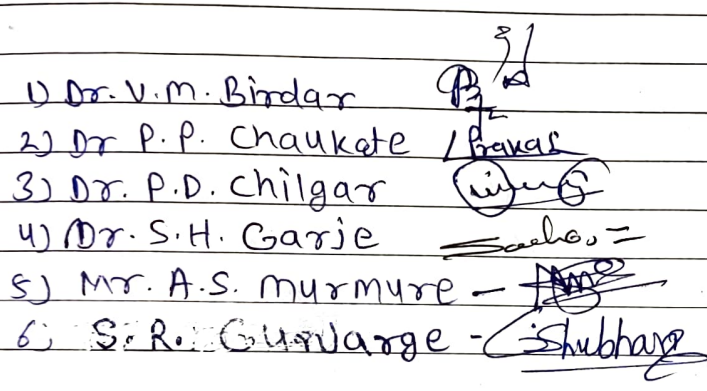 1) Dr. V. M. Birdar
2) Dr P. P. Chaukate Prakas
3) Dr. P.D. Chilgar
4) Dr. S.H. Garje
5) Mr. A.S. murmure -
6) S. R. Gurvarge - Shubham